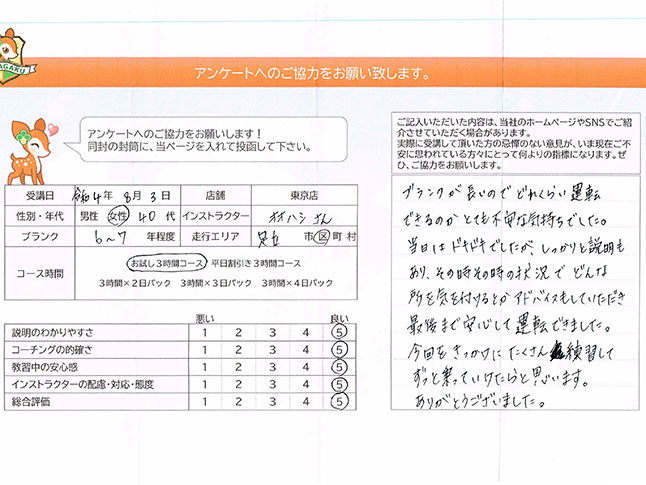 AGAKU
アンケートへのご協力をお願い致します。
アンケートへのご協力をお願いします！
同封の封筒に、当ページを入れて投函して下さい。
受講日 令和4年 8月 3日 店舗 東京店
性別・年代 男性 女性 40代 インストラクター オオハシさん
ブランク 6〜7 年程度 走行エリア 足立 市区町村
コース時間 お試し3時間コース 平日割引き3時間コース
3時間×2日パック 3時間×3日パック 3時間×4日パック
悪い 良い
説明のわかりやすさ 1 2 3 4 5
コーチングの的確さ 1 2 3 4 5
教習中の安心感 1 2 3 4 5
インストラクターの配慮・対応・態度 1 2 3 4 5
総合評価 1 2 3 4 5
ご記入いただいた内容は、当社のホームページやSNSでご紹
介させていただく場合があります。
実際に受講して頂いた方の忌憚のない意見が、いま現在ご不
安に思われている方々にとって何よりの指標になります。ぜ
ひ、ご協力をお願いします。
ブランクが長いのでどれくらい運転
できるのかとても不安な気持ちでした。
当日はドキドキでしたが、しっかりと説明も
あり、その時その時の状況でどんな
所を気を付けるとかアドバイスもしていただき
最後まで安心して運転できました。
今回をきっかけにたくさん練習して
ずっと乗っていけたらと思います。
ありがとうございました。